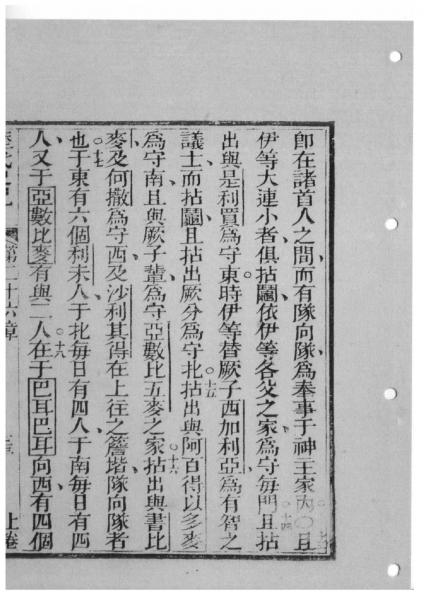 卽在諸首人之間而有隊向隊爲奉事于神王家內○且
伊等大連小者俱拈鬮依伊等各父之家爲守每門○十四且拈
出與是利買爲守東時伊等替厥子西加利亞爲有智之
議士而拈鬮且拈出厥分爲守北○十五拈出與阿百得以多麥
爲守南且與厥子輩爲守亞數比五麥之家○十六拈出與書比
麥及何撒爲守西及沙利其得在上往之簷堦隊向隊者
也○十七于東有六個利未人于北每日有四人于南每日有四
人又于亞數比麥有與二人○十八在于巴耳巴耳向西有四個
第二十六章 上卷